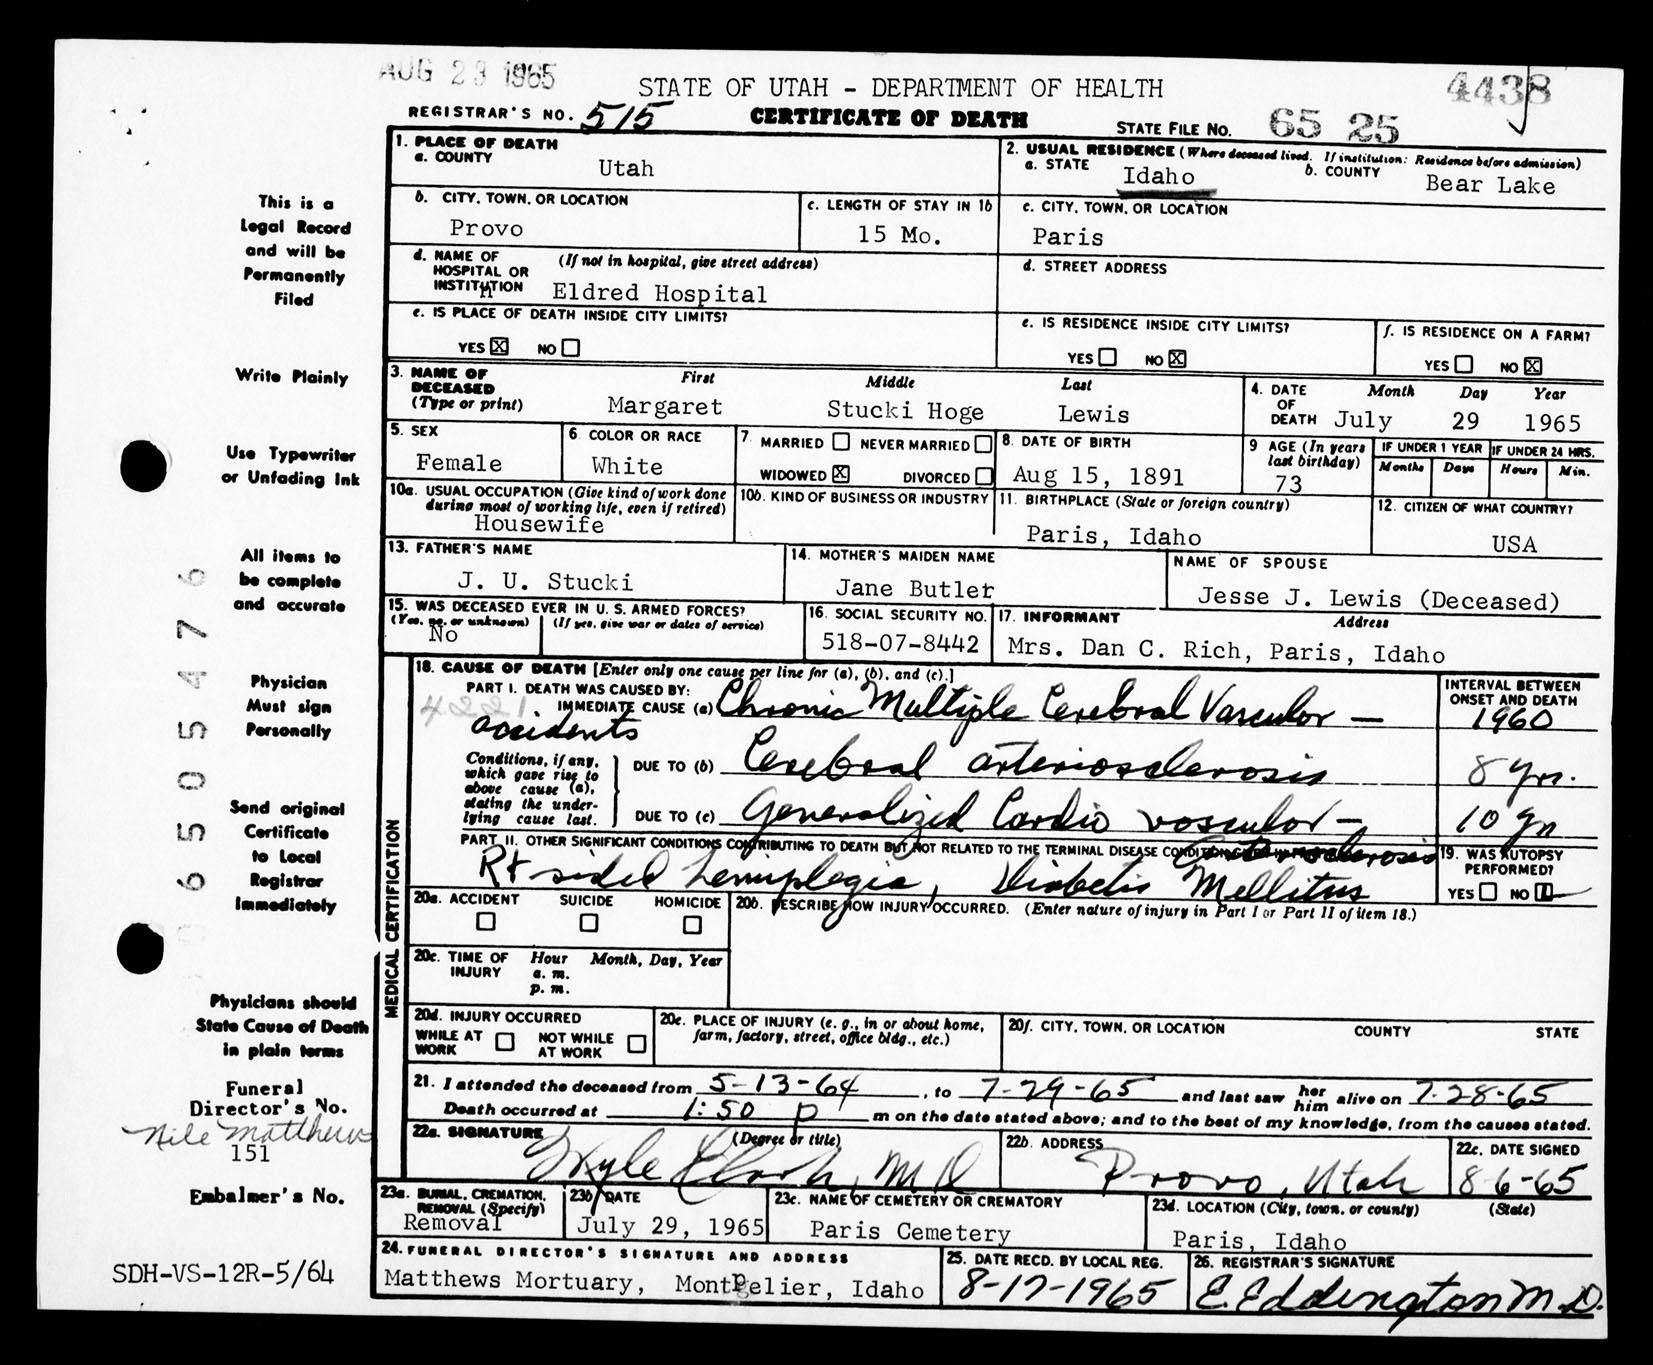 AUG 23 1965
STATE OF UTAH - DEPARTMENT OF HEALTH
4438
REGISTRAR'S NO. 515
CERTIFICATE OF DEATH
STATE FILE NO. 65 25
This is a
Legal Record
and will be
Permanently
Filed
Write Plainly
Use Typewriter
or Unfading Ink
All items to
be complete
and accurate
Physician
Must sign
Personally
Send original
Certificate
to Local
Registrar
Immediately
Physicians should
State Cause of Death
in plain terms
Funeral
Director's No.
Nile Matthews
151
Embalmer's No.
SDH-VS-12R-5/64
0 6 5 5 0 5 4 7 6
1. PLACE OF DEATH
a. COUNTY
Utah
2. USUAL RESIDENCE (Where deceased lived. If institution: Residence before admission)
a. STATE Idaho
b. COUNTY Bear Lake
b. CITY, TOWN, OR LOCATION
Provo
c. LENGTH OF STAY IN 1b
15 Mo.
c. CITY, TOWN, OR LOCATION
Paris
d. NAME OF HOSPITAL OR INSTITUTION (If not in hospital, give street address)
Eldred Hospital
d. STREET ADDRESS
e. IS PLACE OF DEATH INSIDE CITY LIMITS?
YES X NO
e. IS RESIDENCE INSIDE CITY LIMITS?
YES NO X
f. IS RESIDENCE ON A FARM?
YES NO X
3. NAME OF DECEASED (Type or print)
First Middle Last
Margaret Stucki Hoge Lewis
4. DATE OF DEATH
Month Day Year
July 29 1965
5. SEX
Female
6. COLOR OR RACE
White
7. MARRIED NEVER MARRIED
WIDOWED X DIVORCED
8. DATE OF BIRTH
Aug 15, 1891
9 AGE (In years last birthday)
73
IF UNDER 1 YEAR
Months Days
IF UNDER 24 HRS.
Hours Min.
10a. USUAL OCCUPATION (Give kind of work done during most of working life, even if retired)
Housewife
10b. KIND OF BUSINESS OR INDUSTRY
11. BIRTHPLACE (State or foreign country)
Paris, Idaho
12. CITIZEN OF WHAT COUNTRY?
USA
13. FATHER'S NAME
J. U. Stucki
14. MOTHER'S MAIDEN NAME
Jane Butler
NAME OF SPOUSE
Jesse J. Lewis (Deceased)
15. WAS DECEASED EVER IN U. S. ARMED FORCES?
(Yes, no, or unknown) (If yes, give war or dates of service)
No
16. SOCIAL SECURITY NO.
518-07-8442
17. INFORMANT Address
Mrs. Dan C. Rich, Paris, Idaho
MEDICAL CERTIFICATION
18. CAUSE OF DEATH [Enter only one cause per line for (a), (b), and (c).]
INTERVAL BETWEEN ONSET AND DEATH
PART I. DEATH WAS CAUSED BY:
4221
IMMEDIATE CAUSE (a) Chronic Multiple Cerebral Vascular —
1960
accidents
Conditions, if any, which gave rise to above cause (a), stating the underlying cause last.
DUE TO (b) Cerebral arteriosclerosis
8 yrs.
DUE TO (c) Generalized Cardio vascular —
10 yr
arteriosclerosis
PART II. OTHER SIGNIFICANT CONDITIONS CONTRIBUTING TO DEATH BUT NOT RELATED TO THE TERMINAL DISEASE CONDITION GIVEN IN
Rt sided hemiplegia, Diabetis Mellitus
19. WAS AUTOPSY PERFORMED?
YES NO
20a. ACCIDENT SUICIDE HOMICIDE
20b. DESCRIBE HOW INJURY OCCURRED. (Enter nature of injury in Part I or Part II of item 18.)
20c. TIME OF INJURY Hour Month, Day, Year
a. m.
p. m.
20d. INJURY OCCURRED
WHILE AT WORK NOT WHILE AT WORK
20e. PLACE OF INJURY (e. g., in or about home, farm, factory, street, office bldg., etc.)
20f. CITY, TOWN, OR LOCATION COUNTY STATE
21. I attended the deceased from 5-13-64, to 7-29-65 and last saw her him alive on 7-28-65
Death occurred at 1:50 p m on the date stated above; and to the best of my knowledge, from the causes stated.
22a. SIGNATURE (Degree or title)
Clark, M D
22b. ADDRESS
Provo, Utah
22c. DATE SIGNED
8-6-65
23a. BURIAL, CREMATION, REMOVAL (Specify)
Removal
23b DATE
July 29, 1965
23c. NAME OF CEMETERY OR CREMATORY
Paris Cemetery
23d. LOCATION (City, town, or county) (State)
Paris, Idaho
24. FUNERAL DIRECTOR'S SIGNATURE AND ADDRESS
Matthews Mortuary, Montpelier, Idaho
25. DATE RECD. BY LOCAL REG.
8-17-1965
26. REGISTRAR'S SIGNATURE
E. Eddington M.D.